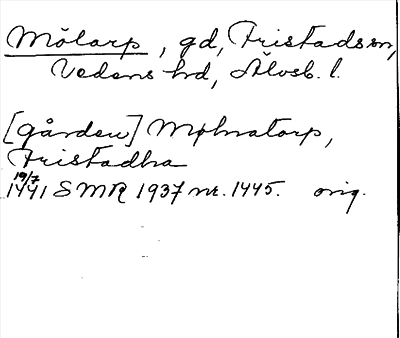 Mölarp, gd, Fristads sn,
Vedens hd, Älvsb. l.
[gården] Mølnatorp,
Fristadha
19/7
1441 SMR 1937 nr. 1445. orig.